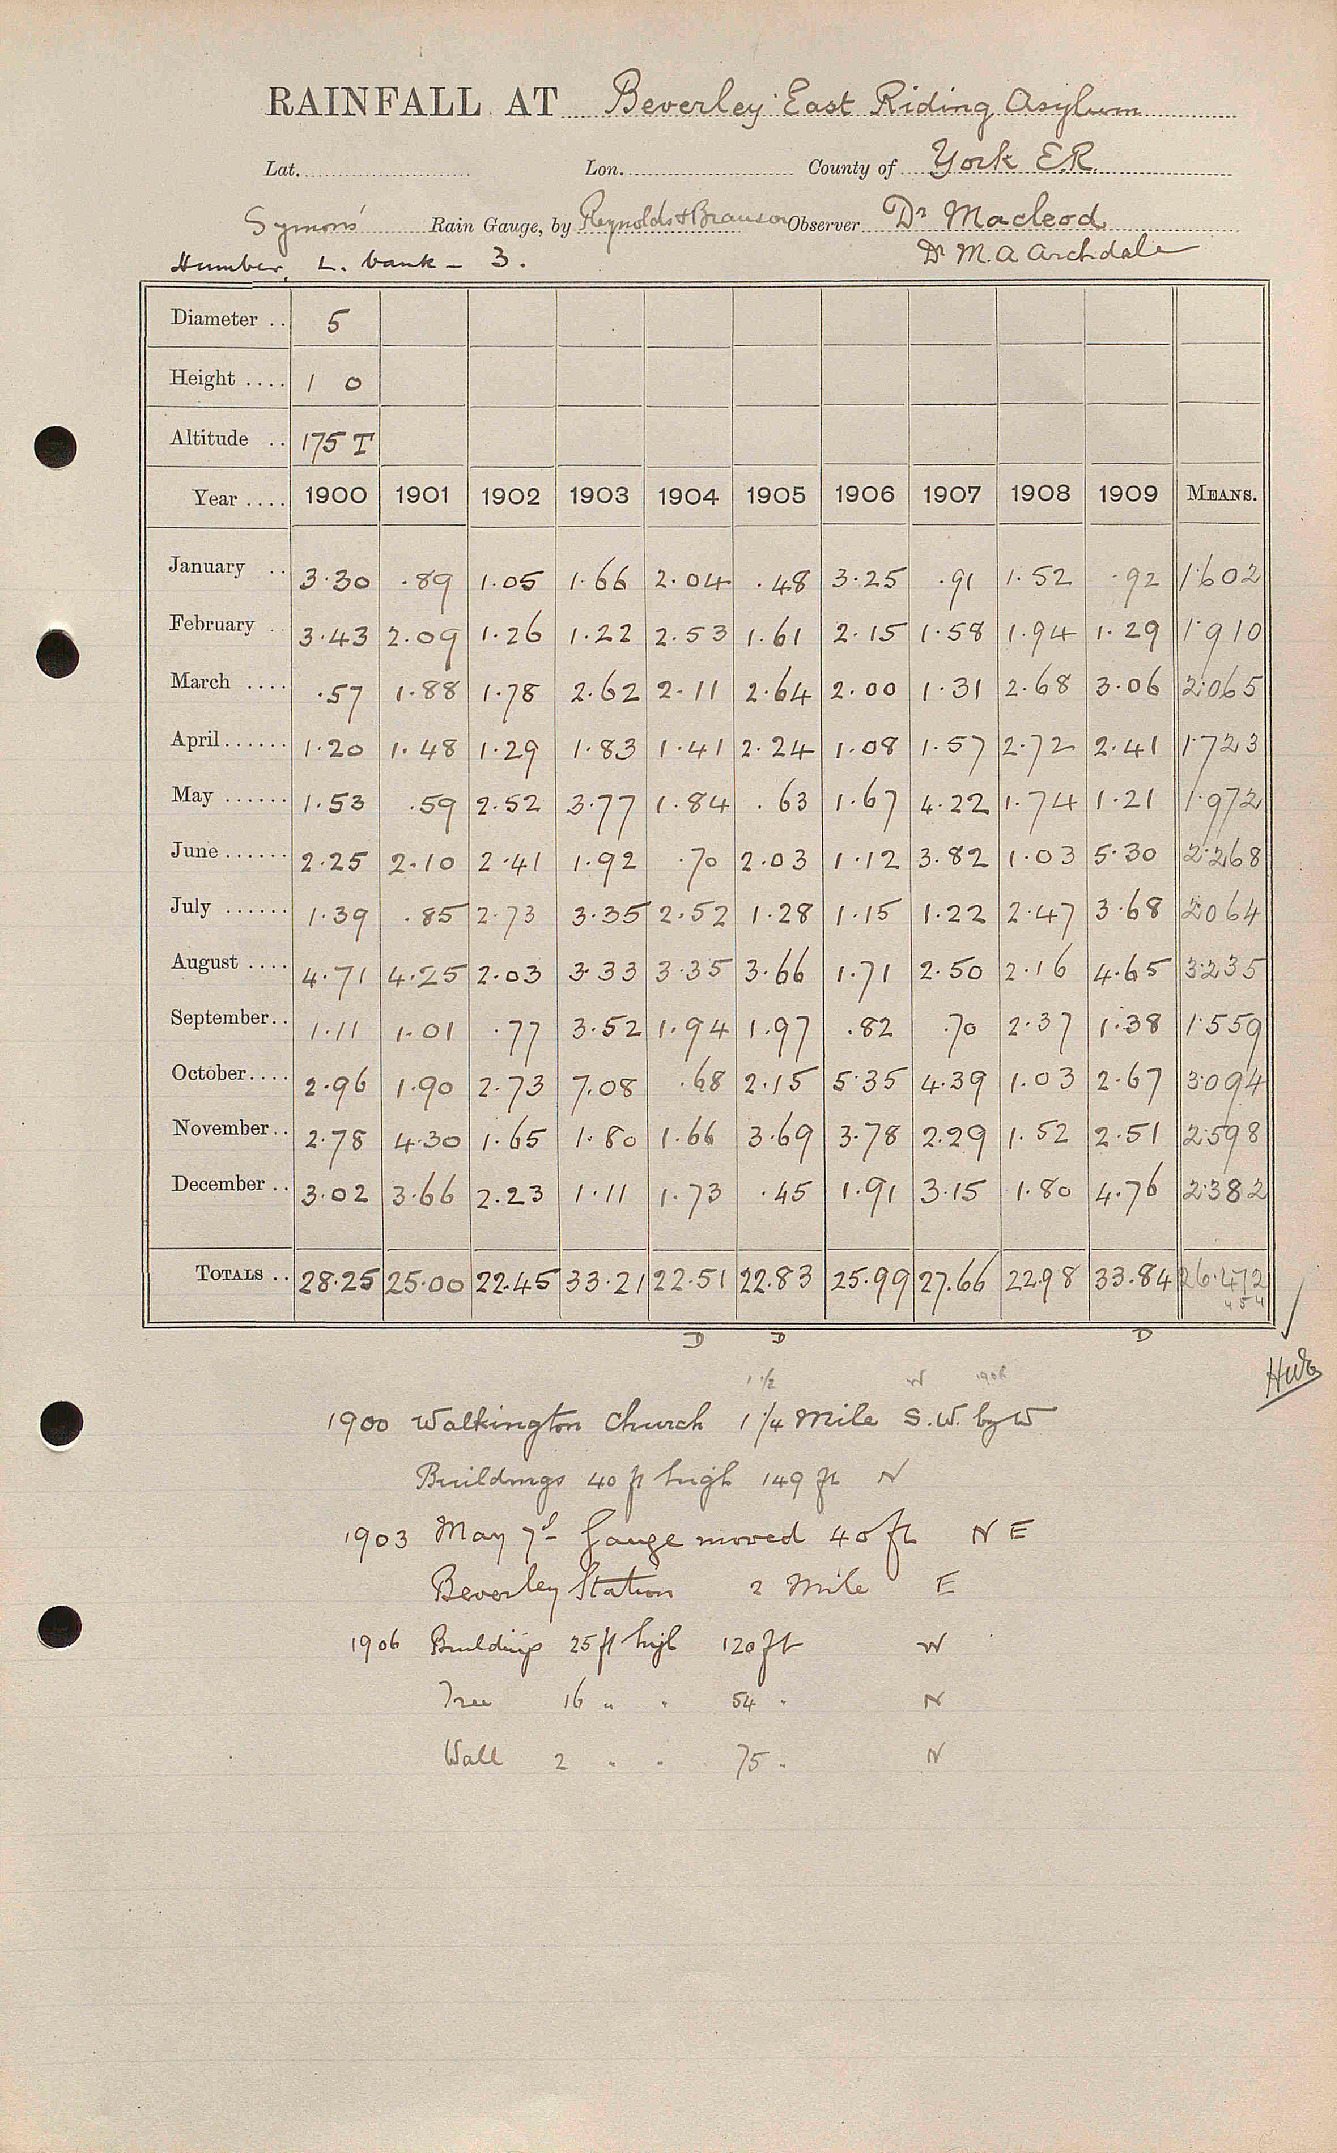 RAINFALL AT Beverley East Riding Asylum
Lat. Lon. County of York E.R.
Symons' Rain Gauge, by Reynolds & Branson Observer Dr Macleod
Humber, L. bank – 3. Dr M. A Archdale
Diameter .. 5
Height .... 1 0
Altitude .. 175 T
Year .... 1900 1901 1902 1903 1904 1905 1906 1907 1908 1909 MEANS.
January .. 3.30 .89 1.05 1.66 2.04 .48 3.25 .91 1.52 .92 1.602
February .. 3.43 2.09 1.26 1.22 2.53 1.61 2.15 1.58 1.94 1.29 1.910
March .... .57 1.88 1.78 2.62 2.11 2.64 2.00 1.31 2.68 3.06 2.065
April ...... 1.20 1.48 1.29 1.83 1.41 2.24 1.08 1.57 2.72 2.41 1.723
May ...... 1.53 .59 2.52 3.77 1.84 .63 1.67 4.22 1.74 1.21 1.972
June ...... 2.25 2.10 2.41 1.92 .70 2.03 1.12 3.82 1.03 5.30 2.268
July ...... 1.39 .85 2.73 3.35 2.52 1.28 1.15 1.22 2.47 3.68 2.064
August .... 4.71 4.25 2.03 3.33 3.35 3.66 1.71 2.50 2.16 4.65 3.235
September .. 1.11 1.01 .77 3.52 1.94 1.97 .82 .70 2.37 1.38 1.559
October .... 2.96 1.90 2.73 7.08 .68 2.15 5.35 4.39 1.03 2.67 3.094
November .. 2.78 4.30 1.65 1.80 1.66 3.69 3.78 2.29 1.52 2.51 2.598
December .. 3.02 3.66 2.23 1.11 1.73 .45 1.91 3.15 1.80 4.76 2.382
TOTALS .. 28.25 25.00 22.45 33.21 22.51 22.83 25.99 27.66 22.98 33.84 26.472
454
D D D
1 1/2 W 1906
1900 Walkington Church 1 1/4 Mile S.W. by W
Buildings 40 ft high 149 ft N
1903 May 7d– Gauge moved 40 ft N E
Beverley Station 2 Mile E
1906 Buildings 25 ft high 120 ft W
Tree 16 " " 54 " N
Wall 2 " " 75 " N